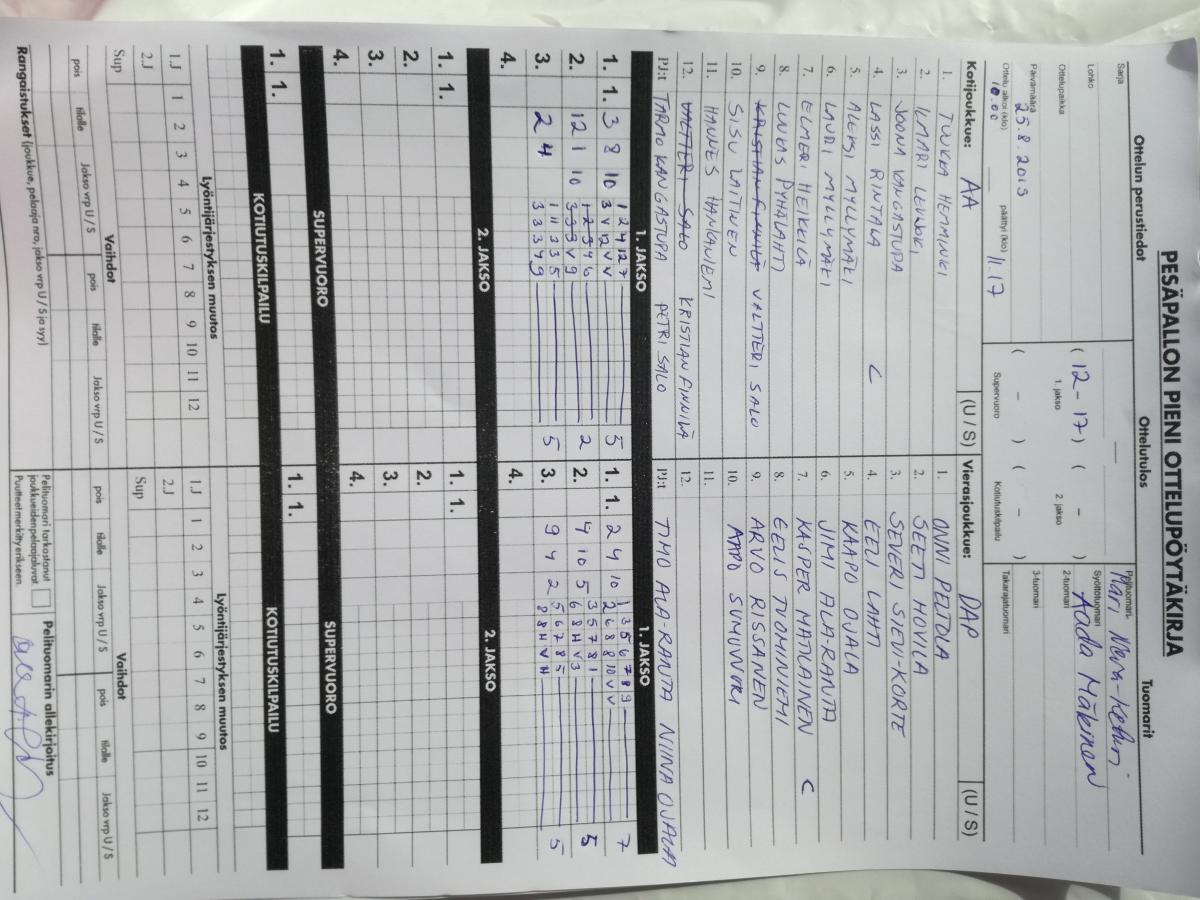 PESÄPALLON PIENI OTTELUPÖYTÄKIRJA
Ottelun perustiedot
Ottelutulos
Tuomarit
Sarja
Lohko
Ottelupaikka
Päivämäärä 25.8.2019
Ottelu alkoi (klo) 10.00
päättyi (klo) 11.17
( 12 - 17 )
1. jakso
( - )
2. jakso
( - )
Supervuoro
( - )
Kotiutuskilpailu
Pelituomari
Syöttötuomari Aada Mäkinen
2-tuomari
3-tuomari
Takarajatuomari
Kotijoukkue: AA (U / S)
1. TUUKKA HEMMINKI
2. ILMARI
3. JOONA KANGASTUPA
4. LASSI RINTALA C
5. ALEKSI MYLLYMÄKI
6. LAURI MYLLYMÄKI
7. ELMERI HEIKKILÄ
8. LUUKAS PYHÄLAHTI
9. VALTTERI SALO
10. SISU LAITINEN
11. HANNES HANKANIEMI
12. VALTTERI SALO KRISTIAN FINNILÄ
PJ:t TARMO KANGASTUPA PETRI SALO
Vierasjoukkue: DAP (U / S)
1. ONNI PELTOLA
2. SEETI HOVILA
3. SEVERI SIEVI-KORTE
4. EELI LAHTI
5. KAAPO OJALA
6. JIMI ALA-RANTA
7. KASPER MATILAINEN C
8. EELIS TUOMINIEMI
9. ARVO RISSANEN
10. AAPO
11.
12.
PJ:t TIMO ALA-RANTA NIINA OJALA
1. JAKSO
1. JAKSO
1. 1. 3 8 10 5
1 2 4 12 7
3 V 12 V V
2. 12 1 10 2
1 2 3 4 6
3 3 3 V 9
3. 2 4 5
1 1 3 3 5
3 3 3 4 9
4.
1. 1. 2 4 10 7
1 3 5 6 7 8 9
2 6 8 8 10 V V
2. 4 10 5 5
3 5 7 8 1
6 8 H V 3
3. 9 4 2 5
5 6 7 8 5
8 8 H V H
4.
2. JAKSO
2. JAKSO
1. 1.
2.
3.
4.
1. 1.
2.
3.
4.
SUPERVUORO
SUPERVUORO
1. 1.
1. 1.
KOTIUTUSKILPAILU
KOTIUTUSKILPAILU
Lyöntijärjestyksen muutos
Lyöntijärjestyksen muutos
1.J 1 2 3 4 5 6 7 8 9 10 11 12
2.J
Sup
1.J 1 2 3 4 5 6 7 8 9 10 11 12
2.J
Sup
Vaihdot
Vaihdot
pois tilalle Jakso vrp U / S pois tilalle Jakso vrp U / S
pois tilalle Jakso vrp U / S pois tilalle Jakso vrp U / S
Rangaistukset (joukkue, pelaaja nro, jakso vrp U / S ja syy)
Pelituomari tarkastanut
joukkueidenpelaajaluvat.
Puutteet merkitty erikseen.
Pelituomarin allekirjoitus